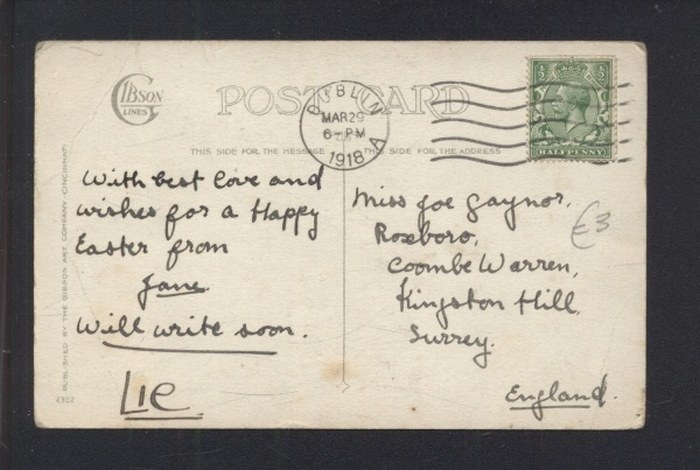 GIBSON
LINES
POST CARD
DUBLIN
MAR 29
6-PM
1918 A
½ ½
HALFPENNY
THIS SIDE FOR THE MESSAGE
THIS SIDE FOR THE ADDRESS
With best love and
wishes for a Happy
Easter from
Jane
Will write soon.
Lie
Miss Joe Gaynor,
Roxboro,
Coombe Warren,
Kingston Hill,
Surrey.
England.
£3
PUBLISHED BY THE GIBSON ART COMPANY CINCINNATI